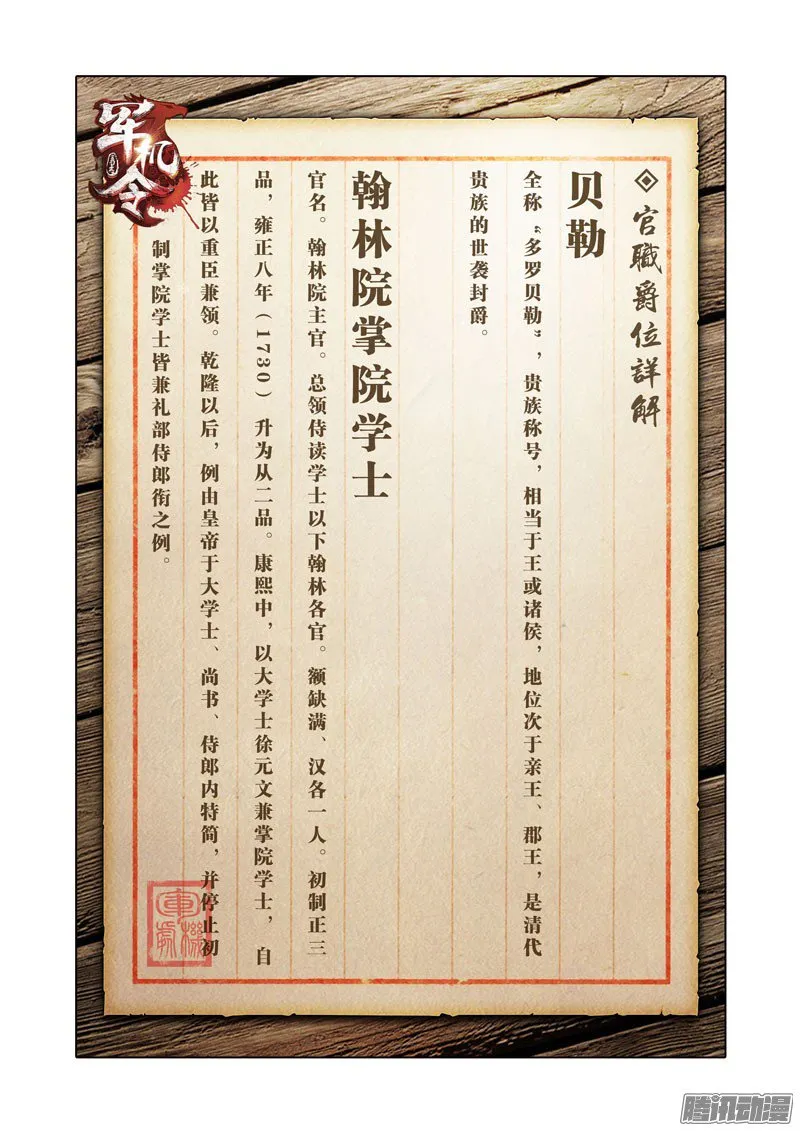 官職爵位詳解
贝勒
全称“多罗贝勒”，贵族称号，相当于王或诸侯，地位次于亲王、郡王，是清代
贵族的世袭封爵。
翰林院掌院学士
官名。翰林院主官。总领侍读学士以下翰林各官。额缺满、汉各一人。初制正三
品，雍正八年（1730）升为从二品。康熙中，以大学士徐元文兼掌院学士，自
此皆以重臣兼领。乾隆以后，例由皇帝于大学士、尚书、侍郎内特简，并停止初
制掌院学士皆兼礼部侍郎衔之例。
军机令
軍機處
腾讯动漫